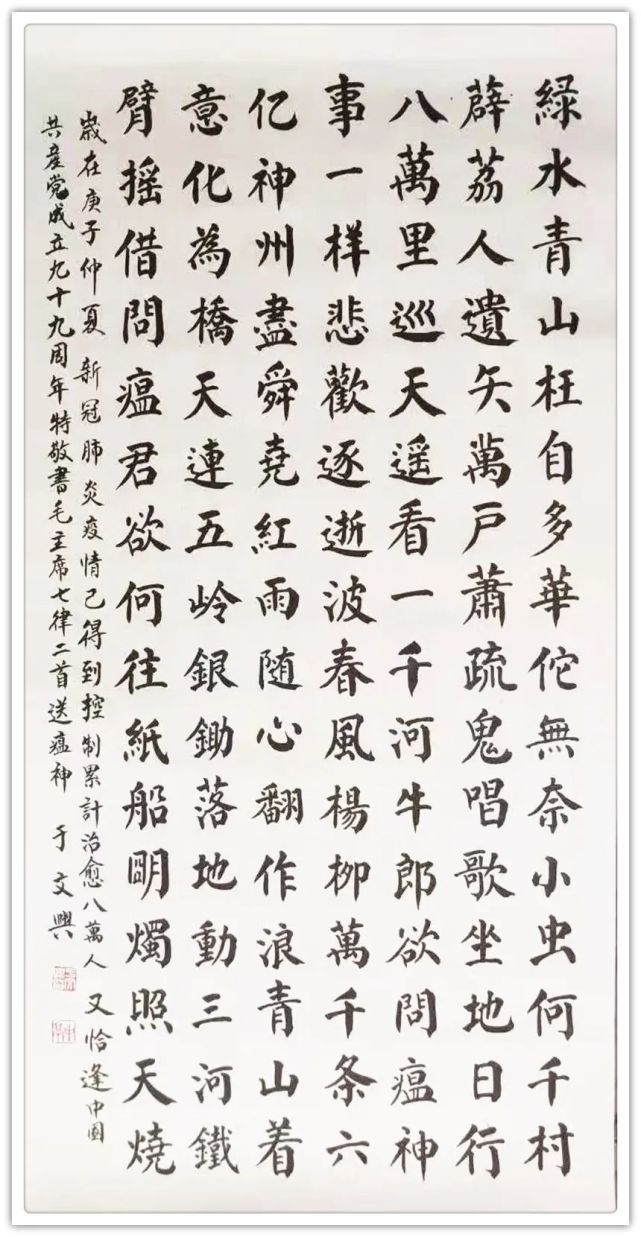 緑水青山枉自多華佗無奈小虫何千村
薜荔人遺矢萬户蕭疏鬼唱歌坐地日行
八萬里巡天遥看一千河牛郎欲問瘟神
事一样悲歡逐逝波春風楊柳萬千条六
亿神州盡舜堯紅雨随心翻作浪青山着
意化為橋天連五岭銀鋤落地動三河鐵
臂摇借問瘟君欲何往紙船明燭照天燒
歲在庚子仲夏新冠肺炎疫情已得到控制累計治愈八萬人又恰逢中国
共産党成立九十九周年特敬書毛主席七律二首送瘟神 于文興